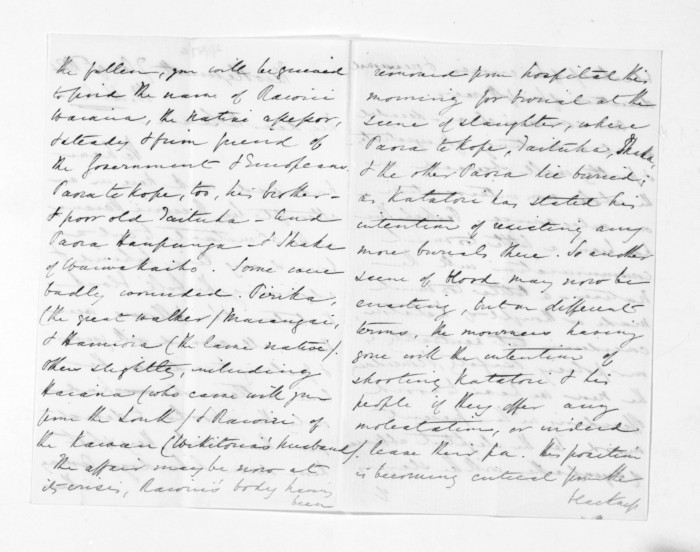 the fallen, you will be grieved
to find the name of Rawiri
Waiaua, the native assessor,
a steady & firm friend of
the Government & Europeans.
Paora te Kope, too, his brother –
& poor old Taituha – and
Paora Haupunga – & Ihaka
of Waiwakaiho. Some were
badly wounded. Pirika,
(the great walker) Marangai,
& Hamiora (the lame native).
Others slightly, including
Haiana (who came with you
from the South) & Rawiri of
the Kawau (Wikitoria's husband).
The affair may be now at
its crisis, Rawiri's body having
been
removed from hospital this
morning for burial at the
scene of slaughter, where
Paora te Kope, Taituha, Ihaka,
& the other Paora lie buried;
as Katatori has stated his
intention of resisting any
more burials there. So another
scene of blood may now be
enacting, but on different
terms, the mourners having
gone with the intention of
shooting Katatori & his
people if they offer any
molestation, or indeed
leave their pa. His position
is becoming critical from the